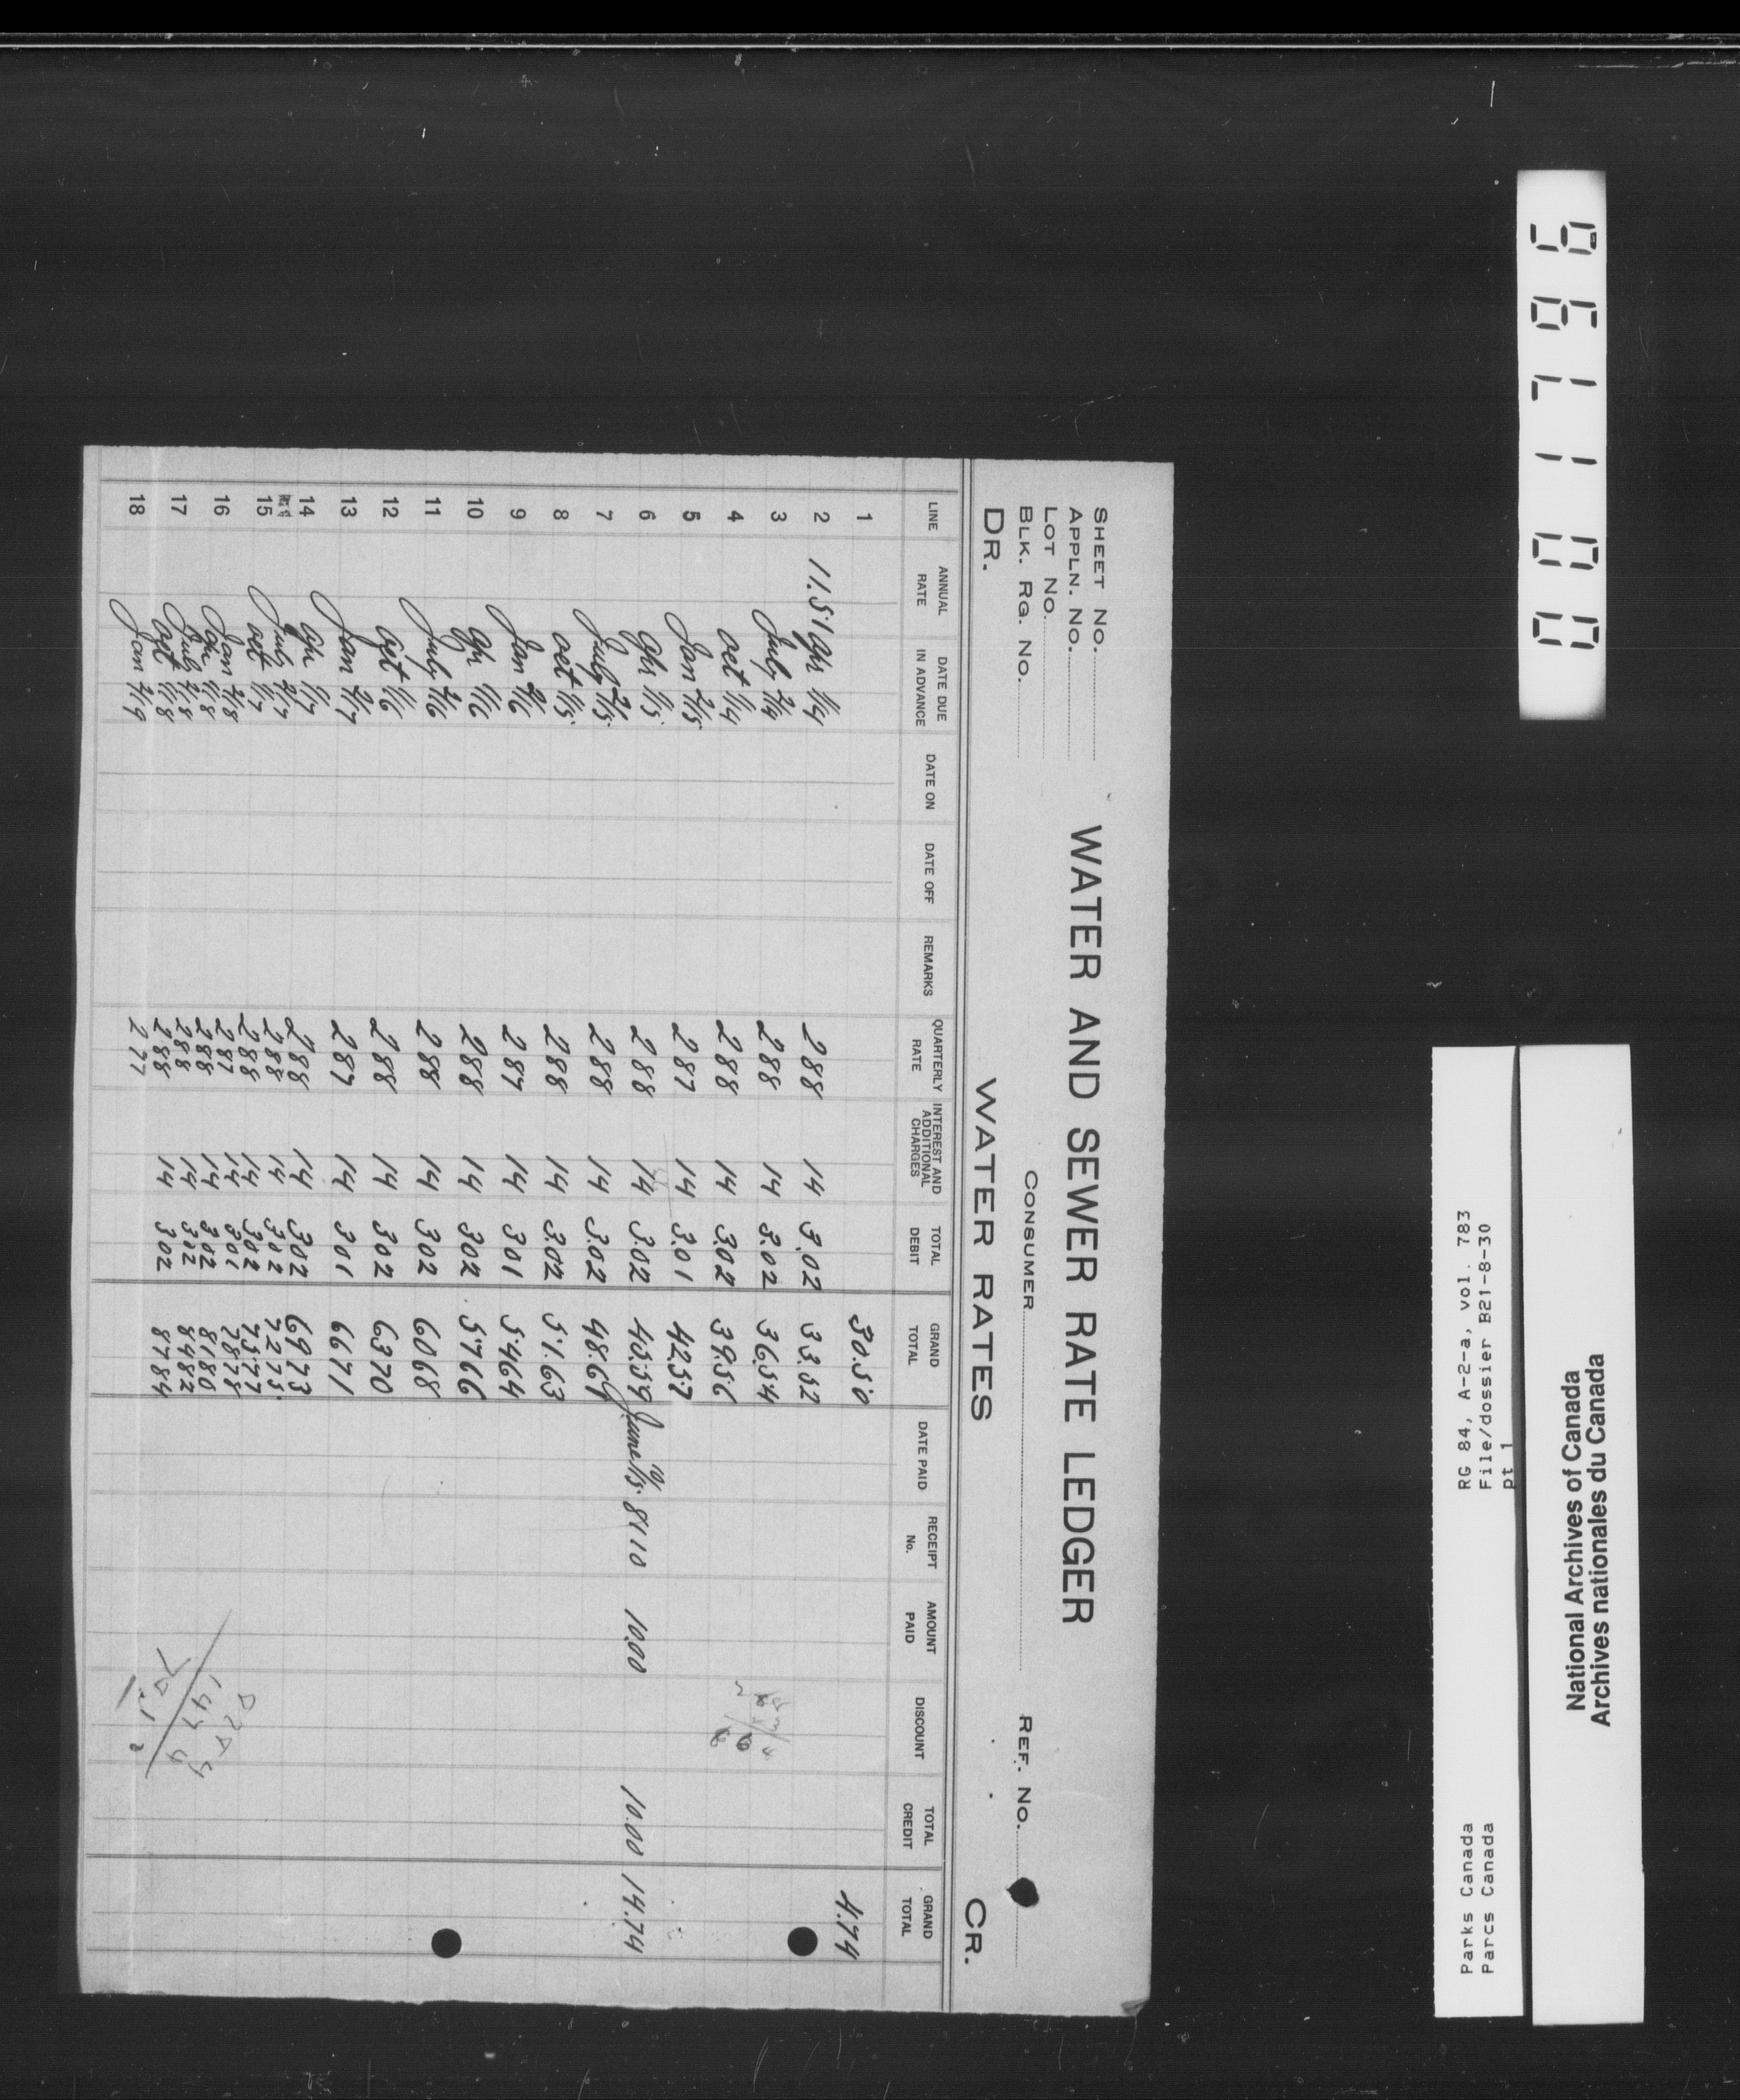 SHEET No.
APPLN. No.
LOT No.
BLK. RG. No.
WATER AND SEWER RATE LEDGER
CONSUMER
REF. No.
DR. WATER RATES CR.
LINE ANNUAL RATE DATE DUE IN ADVANCE DATE ON DATE OFF REMARKS QUARTERLY RATE INTEREST AND ADDITIONAL CHARGES TOTAL DEBIT GRAND TOTAL DATE PAID RECEIPT No. AMOUNT PAID DISCOUNT TOTAL CREDIT GRAND TOTAL
1 30.50 4.74
2 11.51 Apr 1/14 288 14 3.02 33.52
3 July 2/14 288 14 3.02 36.54
4 Oct 1/14 288 14 3.02 39.56
5 Jan 2/15 287 14 3.01 42.57
6 Apr 1/15 288 14 3.02 45.59 June 10/15 8110 10.00 10.00 14.74
7 July 2/15 288 14 3.02 48.61
8 Oct 1/15 288 14 3.02 51.63
9 Jan 2/16 287 14 301 5464
10 Apr 1/16 288 14 302 5766
11 July 2/16 288 14 302 6068
12 Oct 1/16 288 14 302 6370
13 Jan 2/17 287 14 301 6671
14 Apr 1/17 288 14 302 6973
July 2/17 288 14 302 7275
15 Oct 1/17 288 14 302 7577
16 Jan 2/18 287 14 301 7878
Apr 1/18 288 14 302 8180
17 July 2/18 288 14 302 8482
Oct 1/18 288 14 302 8784
18 Jan 2/19 277
961100
RG 84, A-2-a, vol. 783
File/dossier B21-8-30
pt 1
Parks Canada
Parcs Canada
National Archives of Canada
Archives nationales du Canada